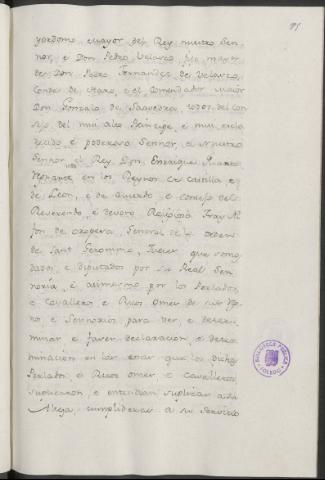 95
yordomo mayor del Rey nuestro Sen-
nor, e Don Pedro Velasco, fijo mayor
de Don Pedro Fernandez de Velasco,
Conde de Haro, e el Comendador Maior
Don Gonzalo de Saavedra, todos del con
sejo del mui alto Principe, e mui escla
recido e poderoso Sennor, el Nuestro
Sennor el Rey Don Enrique Quarto
reynante en los Reynos de Castilla e
de Leon, e de acuerdo e consejo del
Reverendo e devoto Religioso Fray Al
fon de Oropesa, General de la orden
de Sant Geronimo, Jueces que somos
dados, e diputados por su Real Sen-
noría, e asimesmo por los Perlados,
e Cavalleros e Ricos Omes de sus Rey-
nos, e Sennorios para ver, e deter-
minar e facer declaracion, e deter
minacion en las cosas que los dichos
Perlados, e Ricos omes, e cavalleros
suplicaron, e entendian suplicar a su
Alteza, cumplideras a su servicio
BIBLIOTECA PUBLICA
TOLEDO